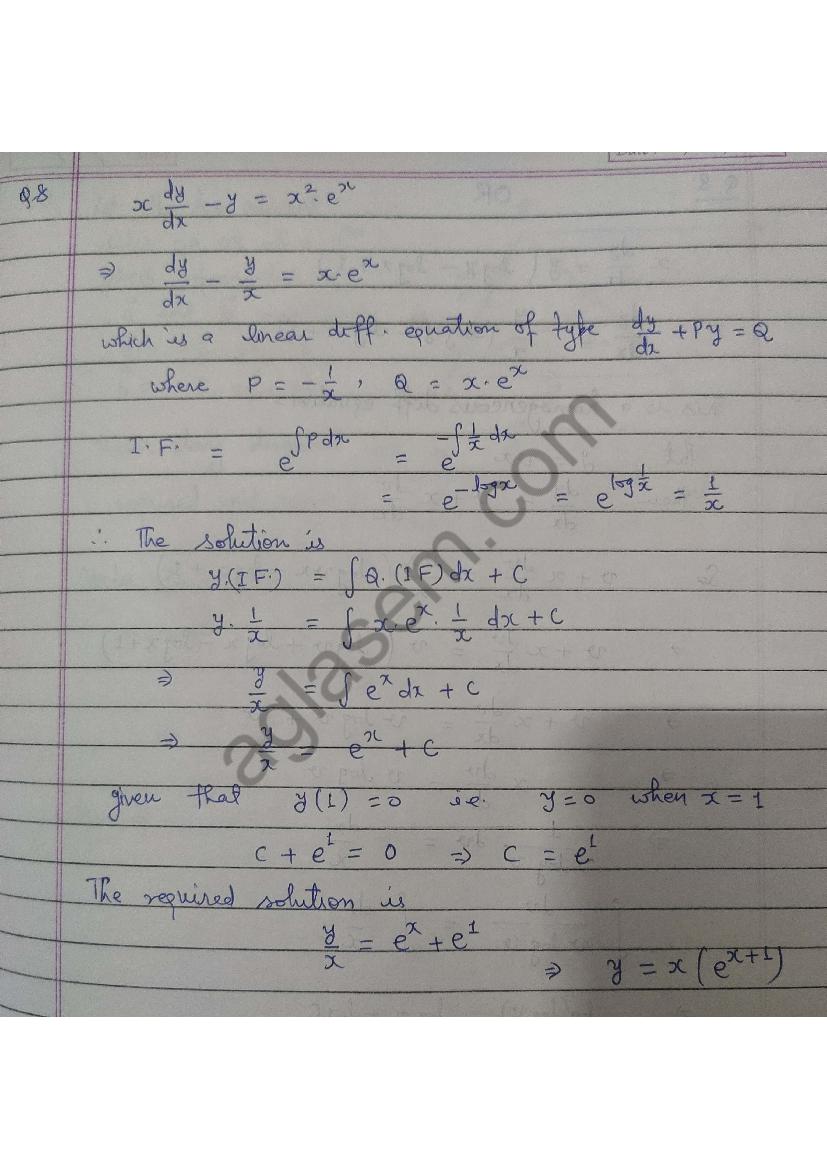 Q8 x dy/dx - y = x². eˣ
⇒ dy/dx - y/x = x·eˣ
which is a linear diff. equation of type dy/dx + Py = Q
where P = -1/x , Q = x·eˣ
I.F. = e^∫Pdx = e^-∫1/x dx
= e^-logx = e^log 1/x = 1/x
∴ The solution is
y.(IF.) = ∫Q.(IF)dx + C
y. 1/x = ∫ x·eˣ. 1/x dx + C
⇒ y/x = ∫ eˣ dx + C
⇒ y/x = eˣ + C
given that y(1) = 0 i.e. y=0 when x=1
C + e¹ = 0 ⇒ C = e¹
The required solution is
y/x = eˣ + e¹
⇒ y = x(e^x+1)
aglasem.com